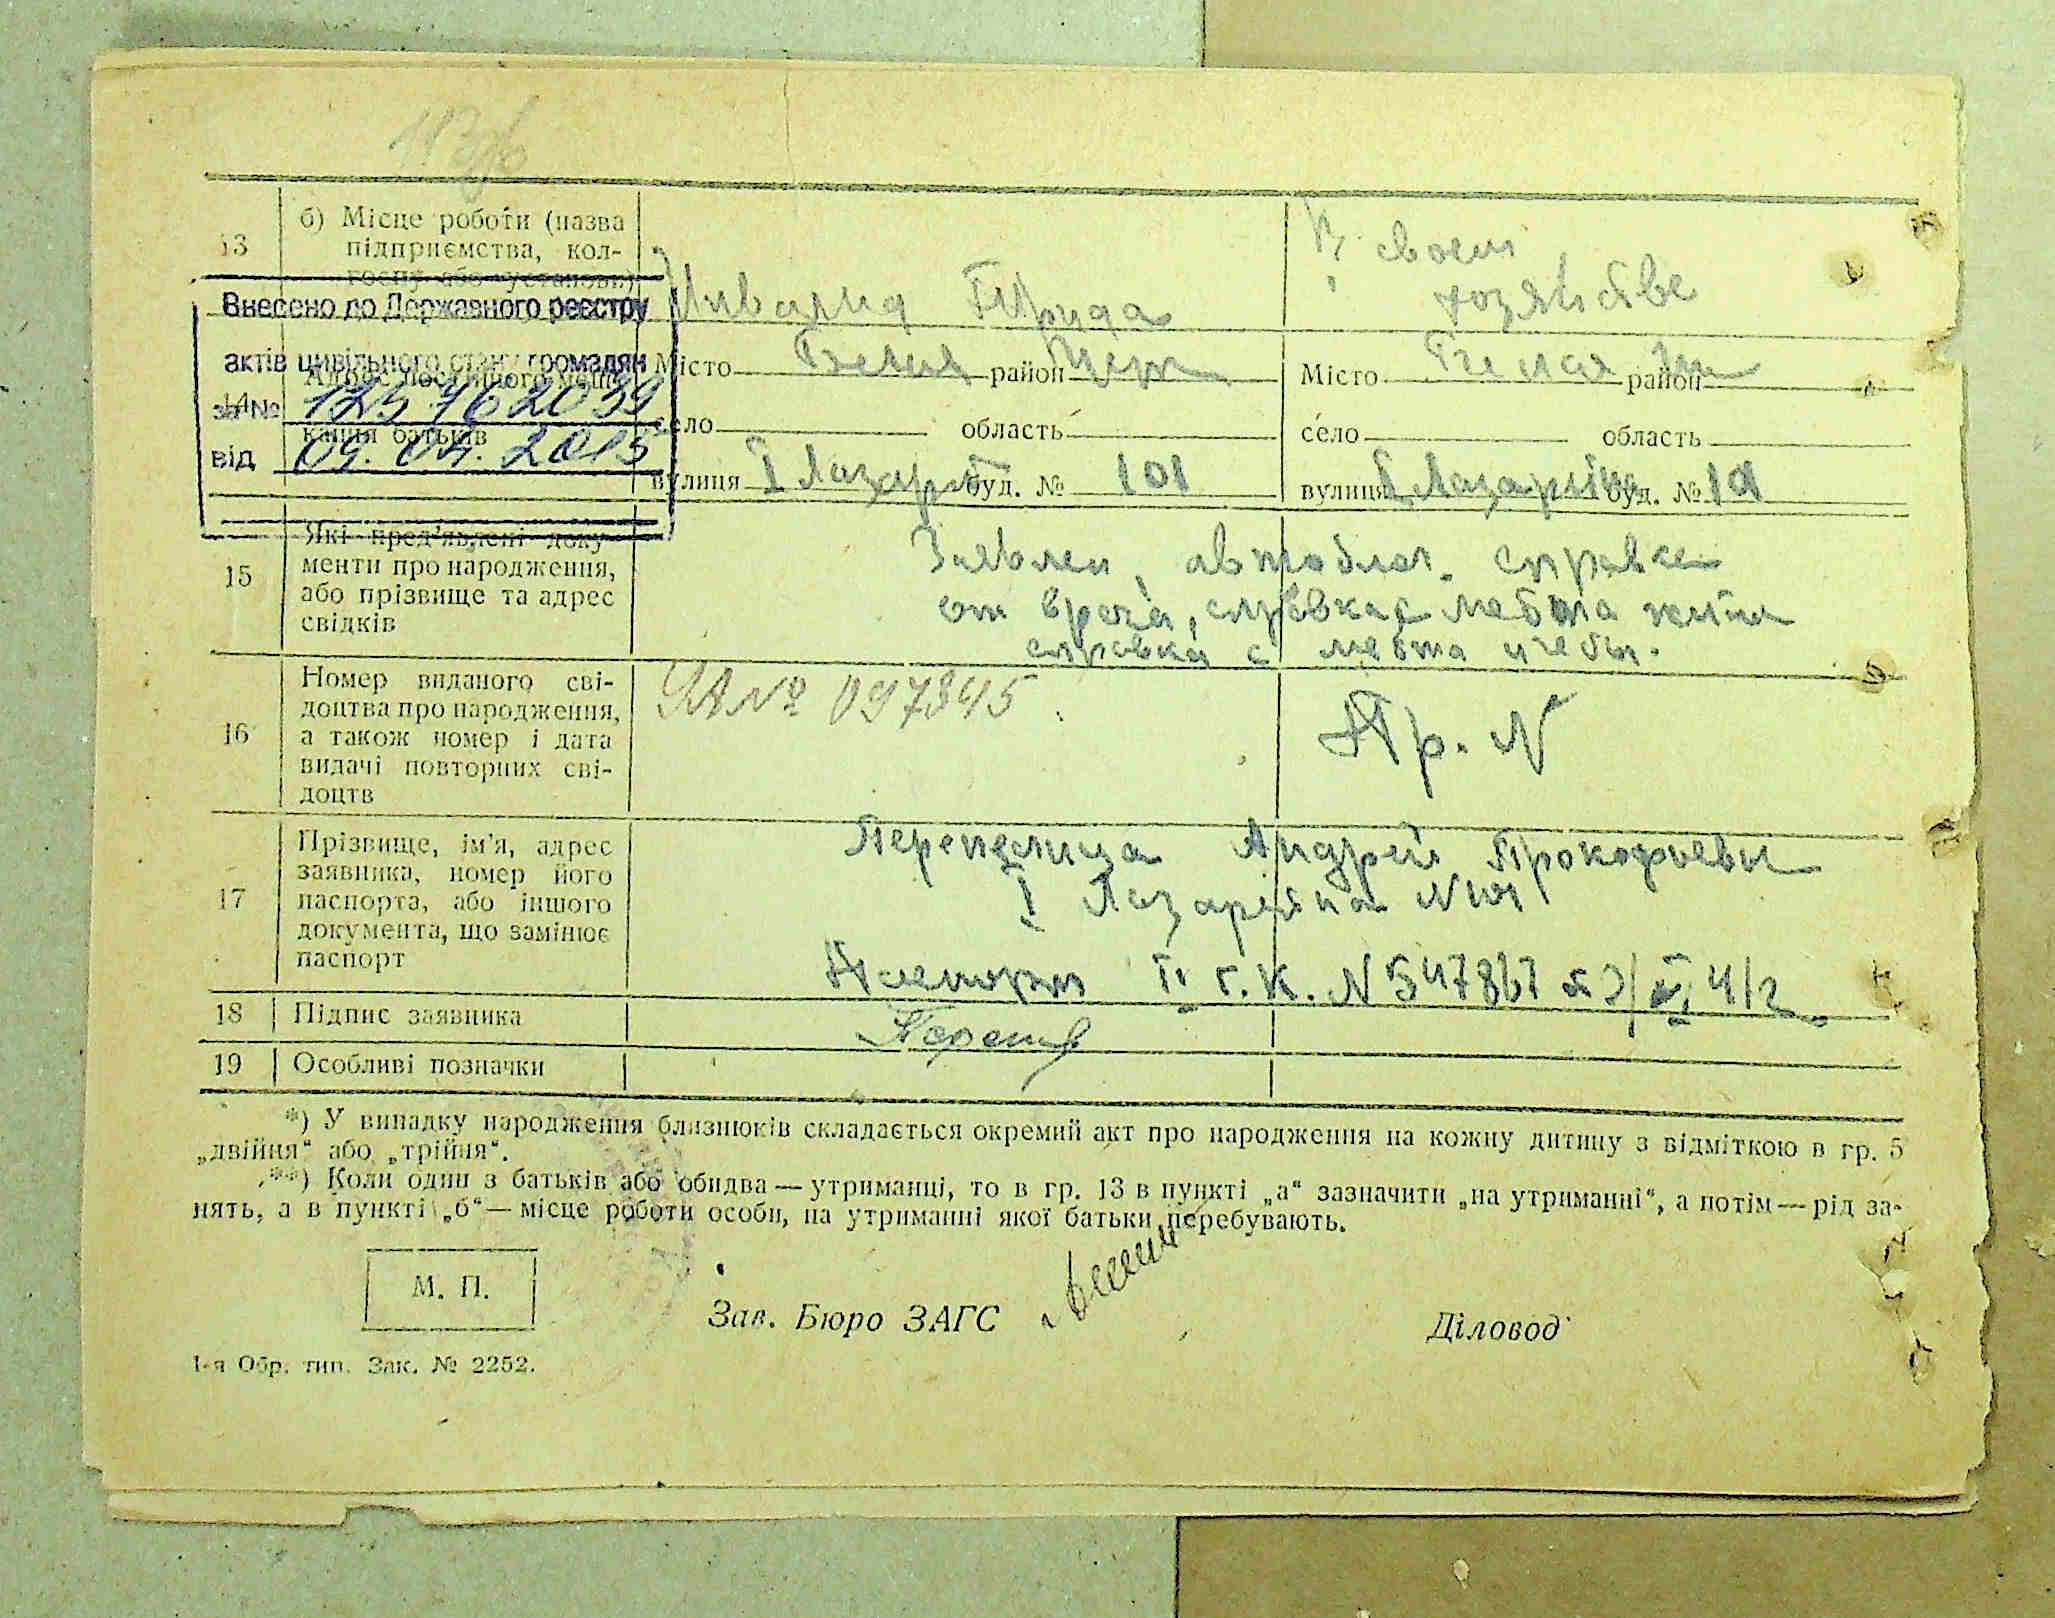 13
б) Місце роботи (назва
підприємства, кол-
госпу або установи)
Инвалид Труда
В своем
хозяйстве
Внесено до Державного реєстру
актів цивільного стану громадян
за № 125762039
від 09. 04. 2015
14
Адрес постійного меш-
кання батьків
Місто Белая Церк район
село область
вулиця I Лазарет буд. № 101
Місто Белая район
село область
вулиця I буд. № 101
15
Які пред'явлені доку-
менти про народження,
або прізвище та адрес
свідків
Заявлен, справке
от врача, справка с места жит
справка с места учебы.
16
Номер виданого сві-
доцтва про народження,
а також номер і дата
видачі повторних сві-
доцтв
ЯА № 097845
17
Прізвище, ім'я, адрес
заявника, номер його
паспорта, або іншого
документа, що замінює
паспорт
Перепелица Андрей Прокофьеви
I N 101
Паспорт II г. К. N 547867
18 Підпис заявника
19 Особливі позначки
*) У випадку народження близнюків складається окремий акт про народження на кожну дитину з відміткою в гр. 5
„двійня“ або „трійня“.
**) Коли один з батьків або обидва — утриманці, то в гр. 13 в пункті „а“ зазначити „на утриманні“, а потім — рід за-
нять, а в пункті „б“ — місце роботи особи, на утриманні якої батьки перебувають.
М. П.
Зав. Бюро ЗАГС
Діловод
1-я Обр. тип. Зак. № 2252.